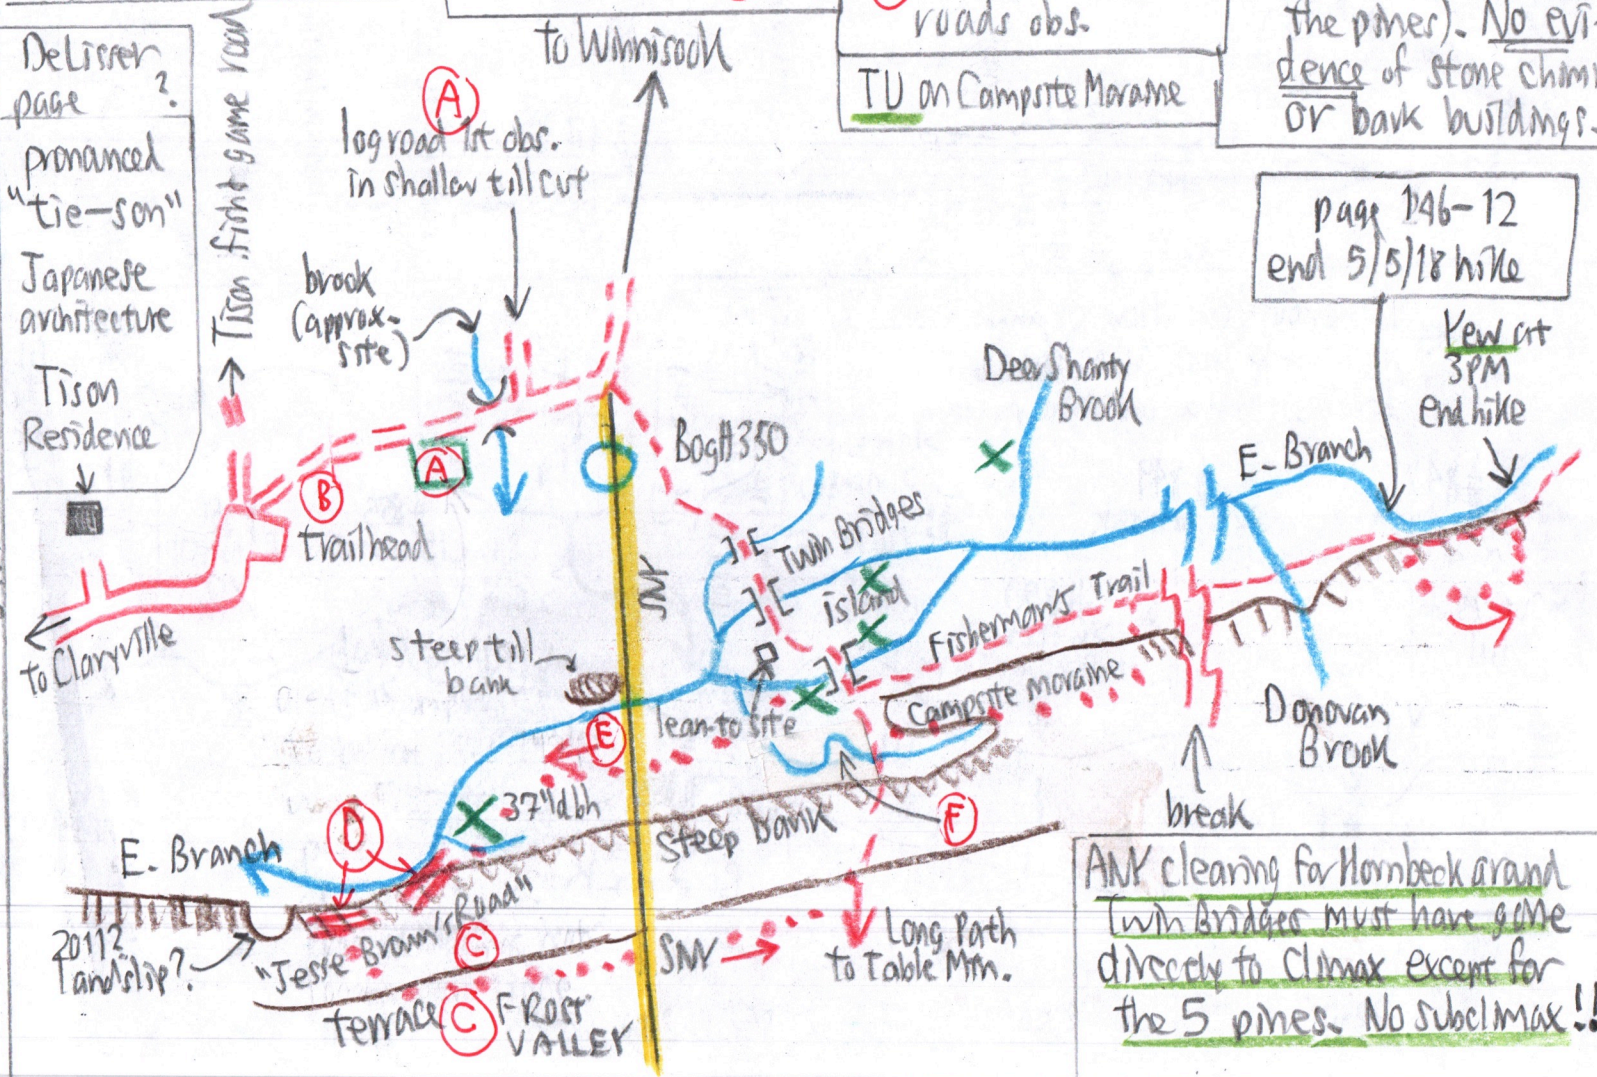 DeLisser
page ?
pronanced
"tie-son"
Japanese
architecture
Tison
Residence
Tison fish+game road
to Winnisook
A
log road 1st obs.
in shallow till cut
brook
(approx-
site)
roads obs.
TU on Campsite Moraine
the pines). No evi-
dence of stone chim
or bark buildings.
page 146-12
end 5/5/18 hike
Yew at
3PM
end hike
Deer Shanty
Brook
E-Branch
A
B
trailhead
Bog#350
Twin Bridges
island
Fisherman's Trail
SNY
to Claryville
steep till
bank
lean-to site
Campsite moraine
Donovan
Brook
break
E
37"dbh
F
D
E-Branch
steep bank
2011?
landslip?
"Jesse Brown's Road"
C
terrace
C
FROST
VALLEY
SNY
Long Path
to Table Mtn.
ANY clearing for Hornbeck around
Twin Bridges must have gone
directly to climax except for
the 5 pines. No subclimax!!